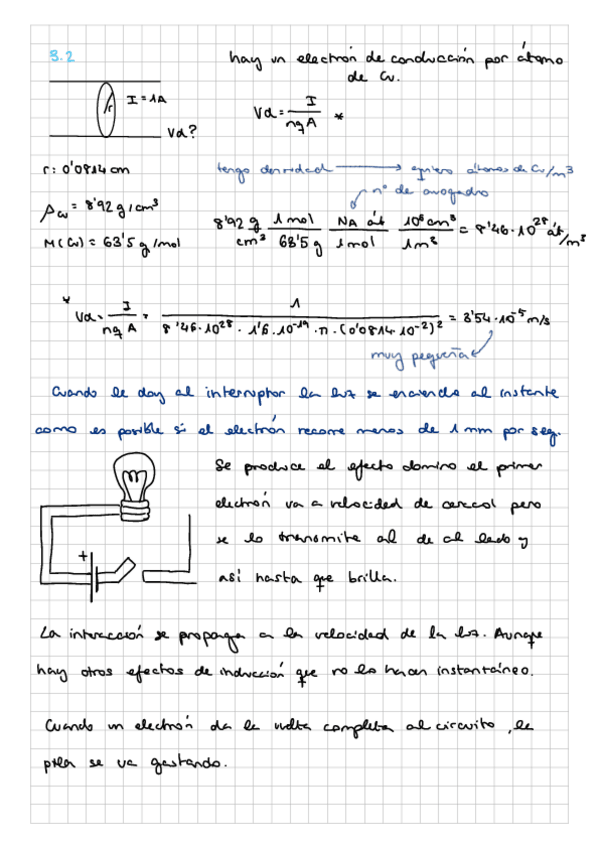 3.2
hay un electrón de conducción por átomo
de Cu.
r
I = 1A
Vd?
Vd = I / nqA *
r: 0'0814 cm
tengo densidad → quiero átomos de Cu/m³
nº de avogadro
ρCu = 8'92 g/cm³
M(Cu) = 63'5 g/mol
8'92 g / cm³ · 1 mol / 63'5 g · NA át / 1 mol · 10⁶ cm³ / 1 m³ = 8'46·10²⁸ át/m³
* Vd = I / nqA = 1 / 8'46·10²⁸ · 1'6·10⁻¹⁹ · π · (0'0814·10⁻²)² = 3'54·10⁻⁵ m/s
muy pequeña
Cuando le doy al interruptor la luz se enciende al instante
como es posible si el electrón recorre menos de 1 mm por seg.
Se produce el efecto domino el primer
electrón va a velocidad de caracol pero
se lo transmite al de al lado y
así hasta que brilla.
+
La interacción se propaga a la velocidad de la luz. Aunque
hay otros efectos de inducción que no lo hacen instantáneo.
Cuando un electrón da la vuelta completa al circuito, la
pila se va gastando.